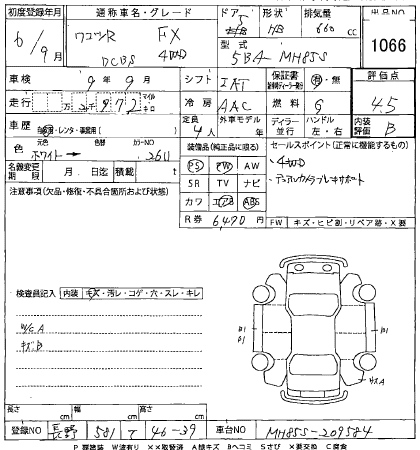 初度登録年月 通称車名・グレード ドア 形状 排気量 出品NO
6/9月 ワゴンR FX 5 HB 660 cc 1066
DCBS 4WD 型式 5BA-MH85S
車検 9年9月 シフト IAT 保証書 有・無 評価点
走行 972 マイル キロ 冷房 AAC 燃料 G 4.5
車歴 自家用・レンタ・事業用( ) 定員 4人 外車モデル 年 ディーラー 並行 ハンドル 左・右 内装評価 B
色 元色 ホワイト 色替 カラーNO 26U 装備品(純正品に限る) セールスポイント(正常に機能するもの)
名義変更期限 月 日迄 積載 PS PW TV ・4WD
注意事項(欠品・修復・不具合箇所および状態) SR TV ナビ ・デュアルカメラブレーキサポート
カワ エアB ABS
R券 6470円 FW キズ・ヒビ割・リペア跡・X要
検査員記入 内装 キズ・汚レ・コゲ・穴・スレ・キレ
W/G.A
キズ.B
B1 B1
キズA
長さ cm 幅 cm 高さ cm
登録NO 長野 581 て 46-39 車台NO MH85S-209584
P 要塗装 W波有り ××取替済 A線キズ Bヘコミ Sさび ×要交換 C腐食